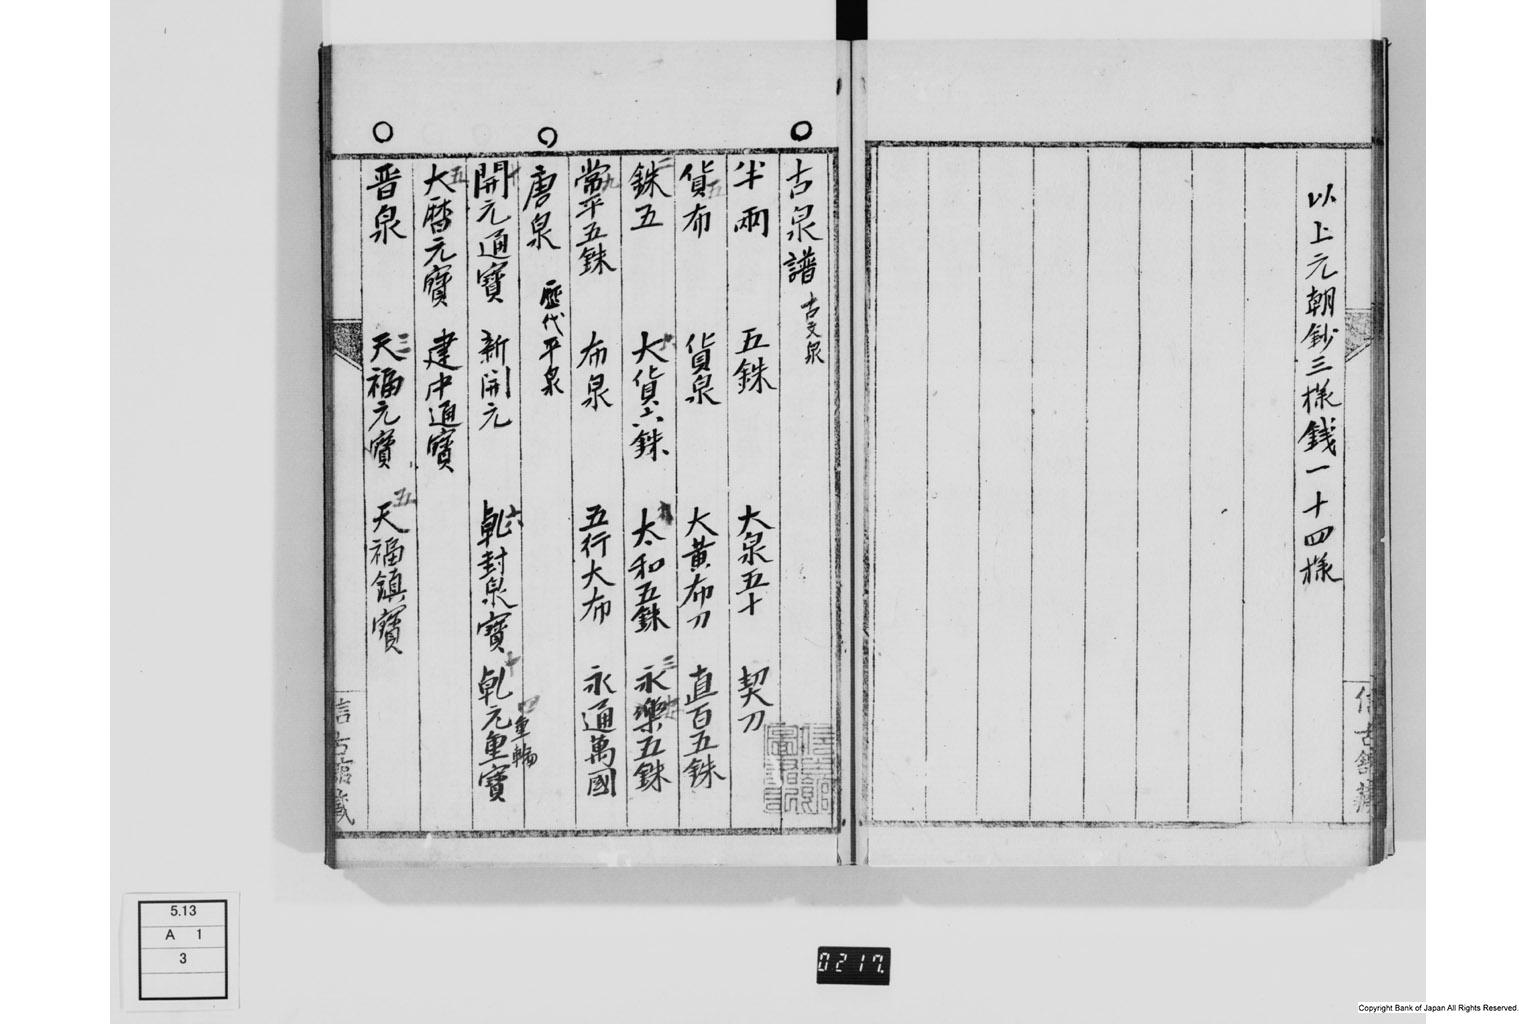 以上元朝鈔三樣錢一十四樣
古泉譜 古文泉
半兩 五銖 大泉五十 契刀
貨布 貨泉 大黃布刀 直百五銖
五
銖五 大貨六銖 太和五銖 永樂五銖
二
三
常平五銖 布泉 五行大布 永通萬國
九
唐泉 歷代平泉
開元通寶 新開元 乹封泉寶 乹元重寶
十
六
十
重輪
大曆元寶 建中通寶
五
晋泉 天福元寶 天福鎮寶
三
五
5.13
A 1
3
0217.
Copyright Bank of Japan All Rights Reserved.